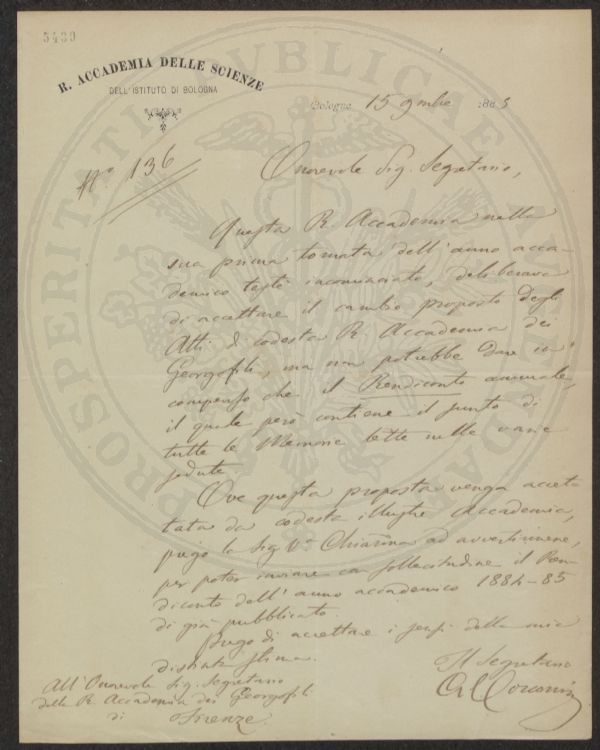 5439
R. ACCADEMIA DELLE SCIENZE
DELL'ISTITUTO DI BOLOGNA
Bologna 15 9mbre 1885
N.° 136
Onorevole Sig. Segretario,
Questa R. Accademia nella
sua prima tornata dell'anno acca-
demico testè incominciato, deliberava
di accettare il cambio proposto degli
Atti di codesta R. Accademia dei
Georgofili, ma non potrebbe dare in
compenso che il Rendiconto annuale,
il quale però contiene il sunto di
tutte le Memorie lette nelle varie
sedute.
Ove questa proposta venga accet-
tata da codesta illustre Accademia,
prego la Sig. V.a Chiarma ad avvertirmene,
per poter inviare con sollecitudine il Ren-
diconto dell'anno accademico 1884-85
di già pubblicato.
Prego di accettare i sensi della mia
distinta stima.
Il Segretario
All'Onorevole Sig. Segretario
della R. Accademia dei Georgofili
di Firenze.
PROSPERITATI PUBLICAE